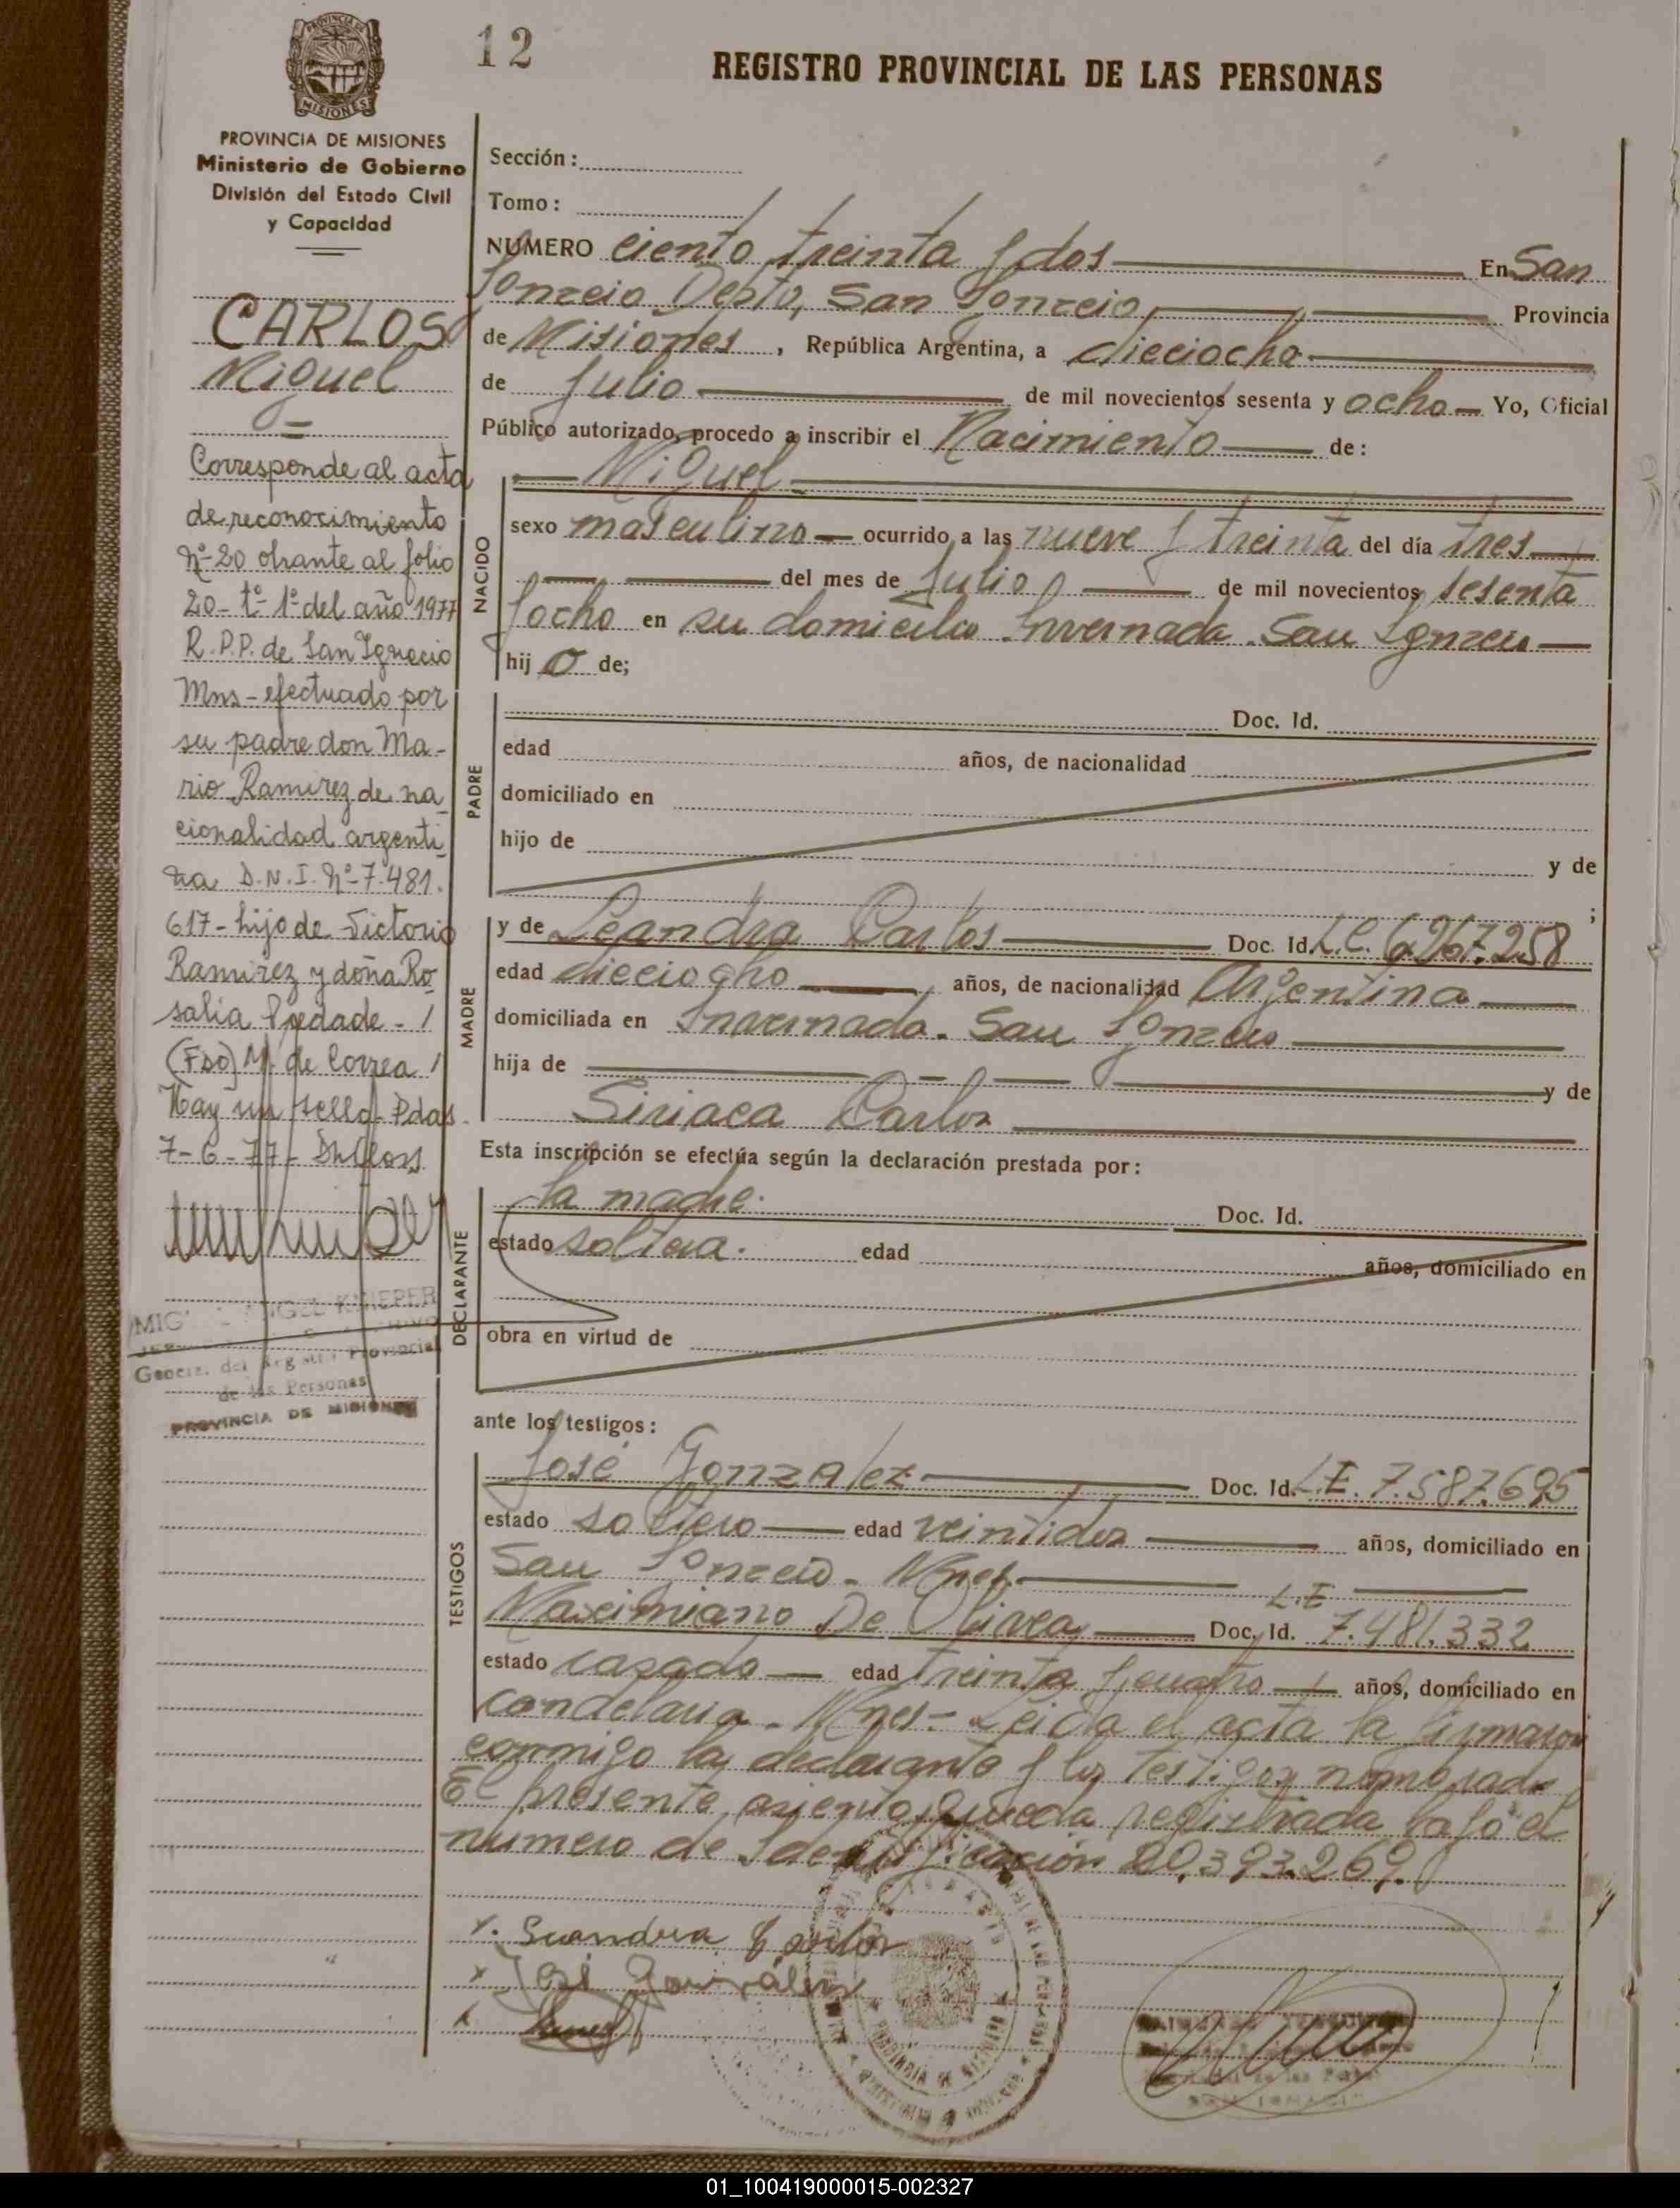 12
REGISTRO PROVINCIAL DE LAS PERSONAS
PROVINCIA DE MISIONES
Ministerio de Gobierno
División del Estado Civil
y Capacidad
CARLOS
Miguel
Corresponde al acta
de reconocimiento
Nº 20 obrante al folio
20 - tº 1º del año 1977
R.P.P. de San Ignacio
Mns - efectuado por
su padre don Ma-
rio Ramirez de na
cionalidad argenti
na D.N.I. Nº 7.481.
617 - hijo de Victorio
Ramirez y doña Ro
salia - /
(Fdo) M. de Correa /
Hay un sello - Pdas -
7-6-77 -
Registro Provincial
de las Personas
PROVINCIA DE MISIONES
Sección:
Tomo:
NUMERO ciento treinta y dos En San
Ignacio Depto, San Ignacio Provincia
de Misiones, República Argentina, a dieciocho
de Julio de mil novecientos sesenta y ocho Yo, Oficial
Público autorizado, procedo a inscribir el Nacimiento de:
Miguel
NACIDO
sexo masculino ocurrido a las nueve y treinta del día tres
del mes de Julio de mil novecientos sesenta
y ocho en su domicilio Invernada - San Ignacio
hij o de;
PADRE
Doc. Id.
edad años, de nacionalidad
domiciliado en
hijo de y de
;
MADRE
y de Leandra Carlos Doc. Id. L.C. 6.267.258
edad dieciocho años, de nacionalidad Argentina
domiciliada en Invernada - San Ignacio
hija de y de
Siriaca Carlos
Esta inscripción se efectúa según la declaración prestada por:
DECLARANTE
la madre. Doc. Id.
estado soltera. edad años, domiciliado en
obra en virtud de
ante los testigos:
TESTIGOS
José Gonzalez Doc. Id. L.E. 7.587.695
estado soltero edad veintidos años, domiciliado en
San Ignacio - Mnes.
L.E
Maximiano De Olivea Doc. Id. 7.481.332
estado casado edad treinta y cuatro años, domiciliado en
Candelaria - Mnes - Leida el acta la firmaron
conmigo la declarante y los testigos nombrados
El presente asiento queda registrada bajo el
numero de Identificación 20.393.269.
x. Leandra Carlos
x José González
x
01_100419000015-002327